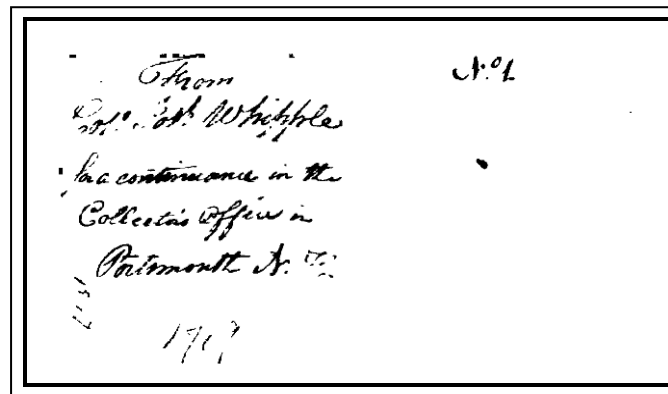 From
N.º 1
Colº Josʰ Whipple
for a continuance in the
Collector's Office in
Portsmouth N.